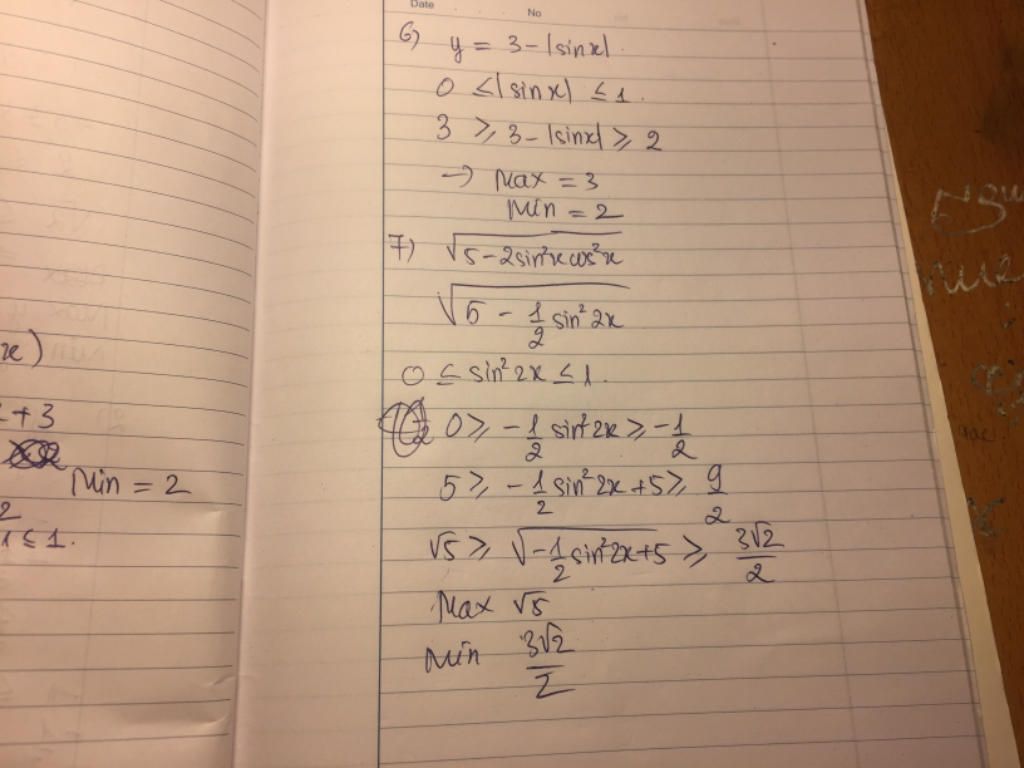 Date No
6) y = 3 - |sinx|.
0 ≤ |sinx| ≤ 1.
3 ≥ 3 - |sinx| ≥ 2
→ Max = 3
Min = 2
7) √(5 - 2sin²xcos²x)
√(5 - 1/2 sin² 2x)
0 ≤ sin² 2x ≤ 1.
0 ≥ -1/2 sin² 2x ≥ -1/2
5 ≥ -1/2 sin² 2x + 5 ≥ 9/2
√5 ≥ √(-1/2 sin² 2x + 5) ≥ 3√2/2
Max √5
Min 3√2/2
x)
+ 3
Min = 2
2
≤ 1.